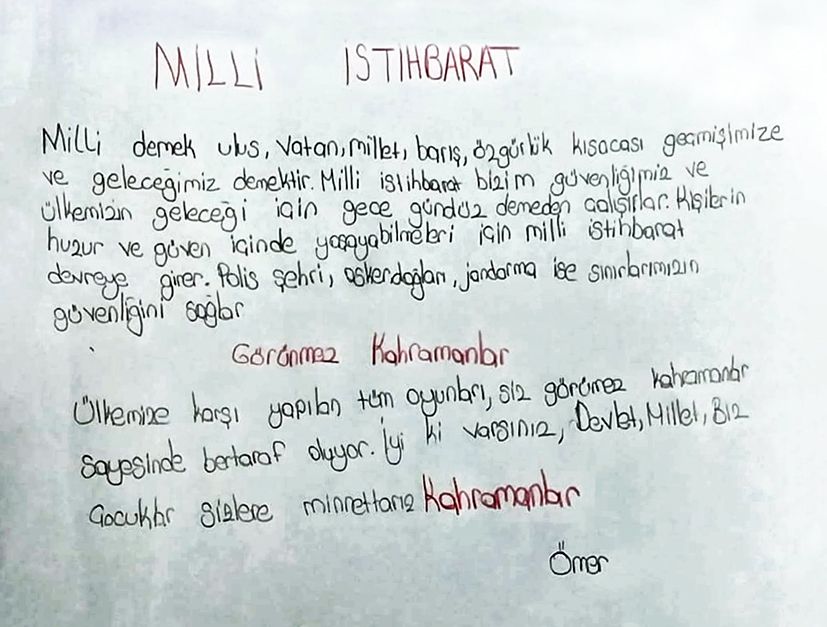 MİLLİ İSTİHBARAT
Milli demek ulus, vatan, millet, barış, özgürlük kısacası geçmişimize
ve geleceğimiz demektir. Milli istihbarat bizim güvenliğimiz ve
ülkemizin geleceği için gece gündüz demeden çalışırlar. Kişilerin
huzur ve güven içinde yaşayabilmeleri için milli istihbarat
devreye girer. Polis şehri, asker dağları, jandarma ise sınırlarımızın
güvenliğini sağlar
Görünmez Kahramanlar
Ülkemize karşı yapılan tüm oyunları, siz görümez kahramanlar
sayesinde bertaraf oluyor. İyi ki varsınız, Devlet, Millet, Biz
Çocuklar sizlere minrettarız Kahramanlar
Ömer